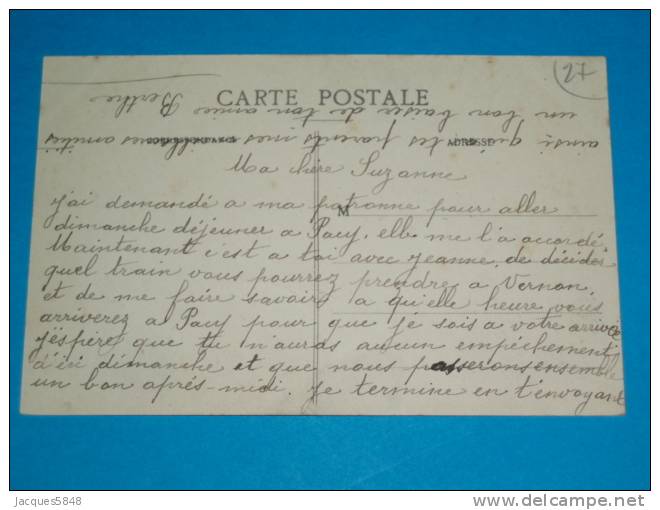 27
CARTE POSTALE
CORRESPONDANCE
ADRESSE
M
Ma chère Suzanne
j'ai demandé a ma patronne pour aller
dimanche déjeuner a Pacy, elle me l'a accordé.
Maintenant c'est a toi avec Jeanne de décider
quel train vous pourrez prendre a Vernon,
et de me faire savoir a qu'elle heure vous
arriverez a Pacy pour que je sois a votre arrivée
j'éspère que tu n'auras aucun empéchement
d'ici dimanche et que nous passerons ensemble
un bon après-midi. Je termine en t'envoyant
ainsi que tes parents mes meilleures amitiés
un bon baiser de ton amie Berthe
Jacques5848
www.delcampe.net